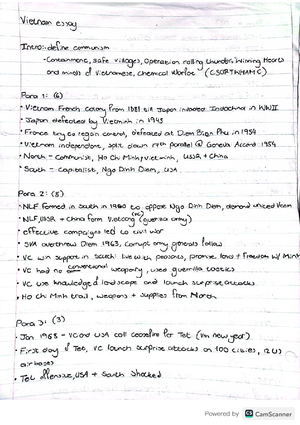 Vietnam essay
Intro:- define communism
- Containment, safe villages, Operation rolling thunder, Winning Hearts
and minds of Vietnamese, Chemical Warfare (CSORTWHAMC)
Para 1: (6)
• Vietnam French colony from 1881 till Japan invaded Indochina in WWII
• Japan defeated by Vietminh in 1945
• France try to regain control, defeated at Dien Bien Phu in 1954
• Vietnam independent, split down 17th parallel @ Geneva Accord 1954
• North - Communist, Ho Chi Minh/vietminh, USSR + China
• South - Capitalist, Ngo Dinh Diem, USA
Para 2: (8)
• NLF formed in South in 1960 to oppose Ngo Dinh Diem, demand united Vnam
• NLF, USSR + China form Vietcong (guerrilla army)
(VC)
• effective campaigns led to civil war
• SVA overthrew Diem 1963, corrupt army generals follow
• VC win support in South: live with peasants, promise land + freedom w/ Minh
• VC had no conventional weaponry, used guerrilla tactics
• VC use knowledge of landscape and launch surprise attacks
• Ho Chi Minh trail, weapons + supplies from North
Para 3: (3)
• Jan 1968 - VC and USA call ceasefire for Tet (Vm new year)
• First day of Tet, VC launch surprise attacks on 100 cities, 12 US
air bases
• Tet offensive, USA + South shocked
Powered by CS CamScanner